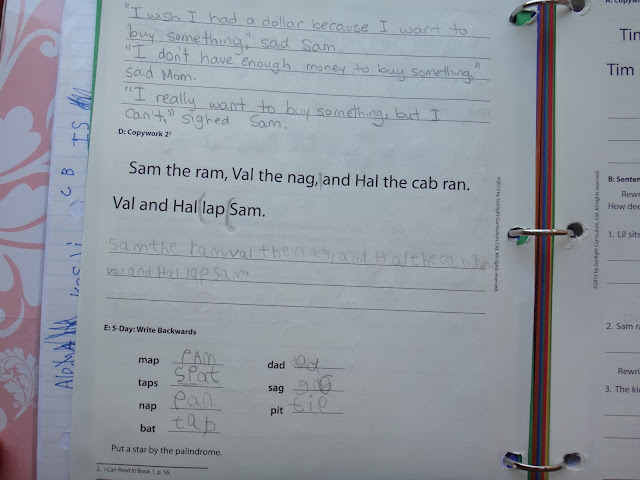 "I wish I had a dollar because I want to
buy something," said Sam.
"I don't have enough money to buy something,"
said Mom.
"I really want to buy something, but I
can't," sighed Sam.
D: Copywork 2³
Sam the ram, Val the nag, and Hal the cab ran.
Val and Hal lap Sam.
Sam the ram, val the nag, and Hal the cab ran
val and Hal lap Sam.
E: 5-Day: Write Backwards
map PAM
taps Spat
nap Pan
bat tap
dad
sag gas
pit tip
Put a star by the palindrome.
3. I Can Read It! Book 1, p. 16.
©2013 by Sonlight Curriculum, Ltd. All rights reserved.
A: Copywork
Tim
Tim
B: Senten
Rewr
How doe
1. Lil sits
2. Sam ra
Rewri
3. The kid
©2013 by Sonlight Curriculum, Ltd. All rights reserved.
CB IS